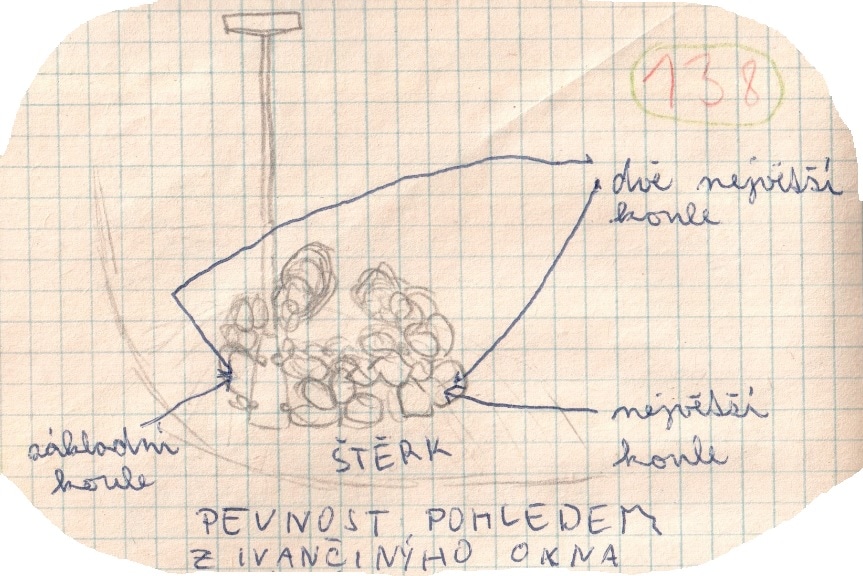 138
dvě největší
koule
největší
koule
základní
koule
ŠTĚRK
PEVNOST POHLEDEM
Z IVANČINÝHO OKNA